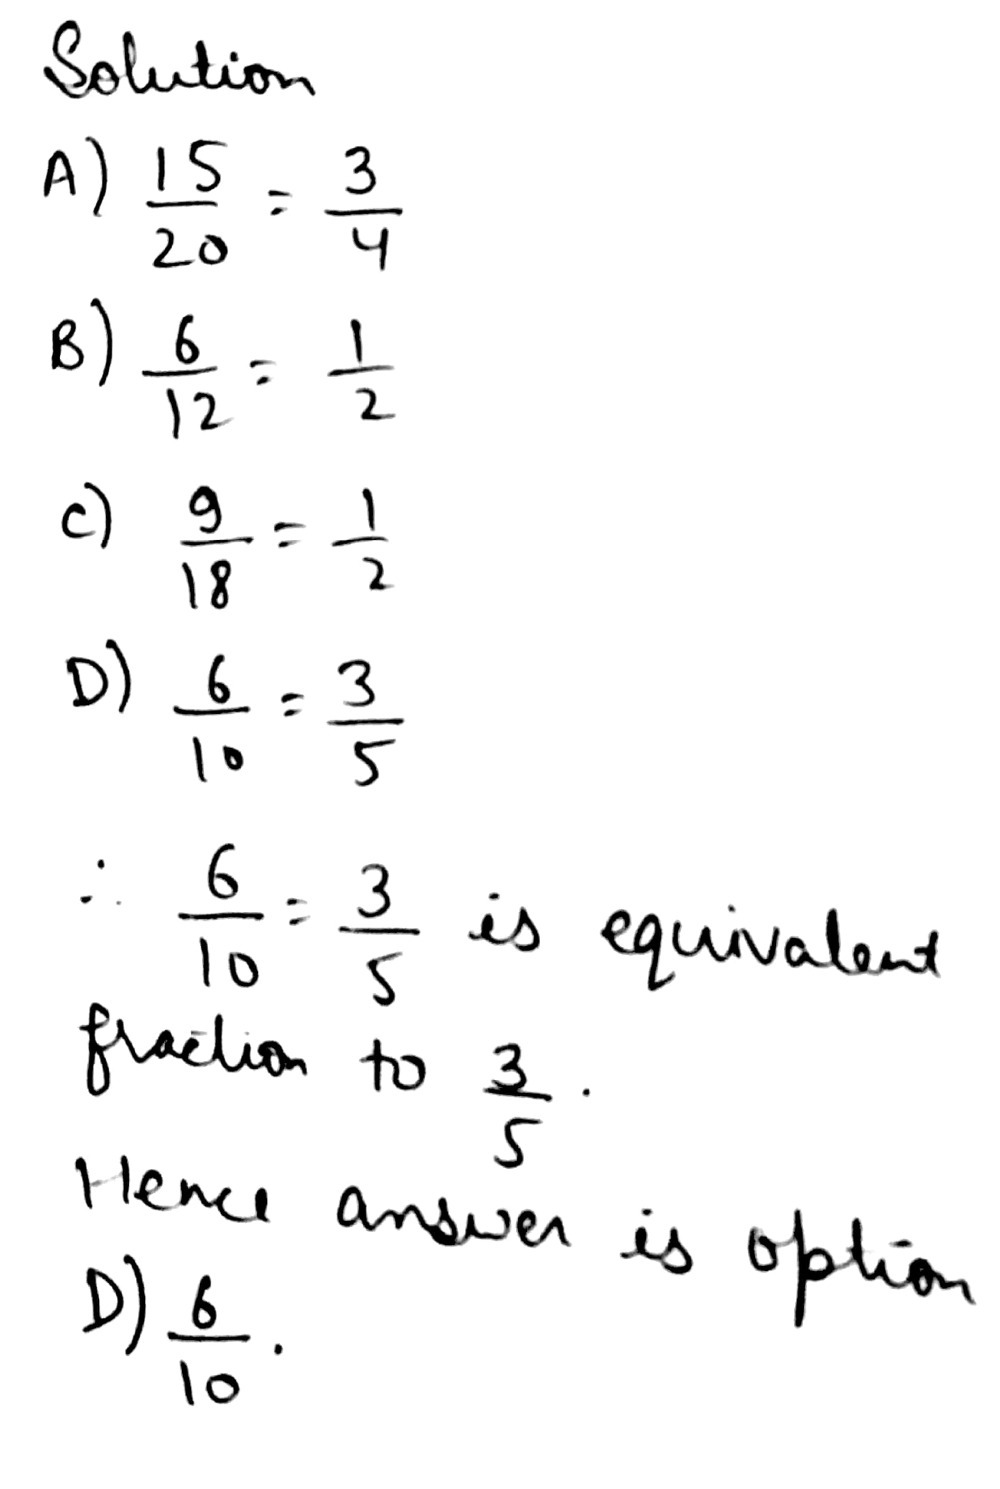 Solution
A) 15/20 = 3/4
B) 6/12 = 1/2
C) 9/18 = 1/2
D) 6/10 = 3/5
∴ 6/10 = 3/5 is equivalent
fraction to 3/5.
Hence answer is option
D) 6/10.